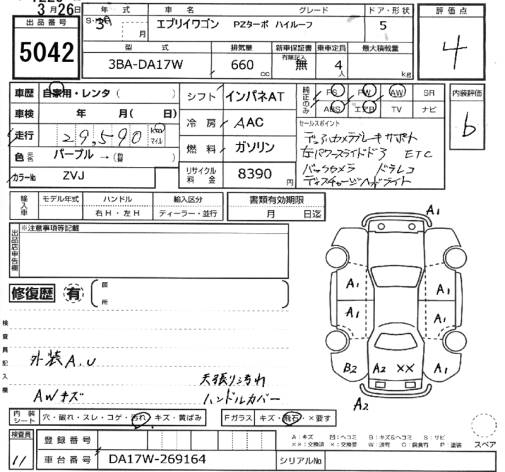 3月26日
出品番号 5042
年式 S・H・R 3年 月
車名 エブリイワゴン グレード PZターボ ハイルーフ
ドア・形状 5
評価点 4
型式 3BA-DA17W
排気量 660 cc
新車保証書 有 無
乗車定員 4人
最大積載量 kg
車歴 自家用・レンタ( )
車検 年 月( 日)
走行 29,590 km マイル
色 パープル →(替)
カラーNo ZVJ
シフト インパネAT
冷房 AAC
燃料 ガソリン
リサイクル料金 8390 円
純正のみ PS PW AW SR
ABS エアB TV ナビ
内装評価 b
セールスポイント
デュアルカメラブレーキサポート
左パワースライドドア ETC
バックカメラ ドラレコ
ディスチャージヘッドライト
輸入車 モデル年式 年 ハンドル 右H・左H 輸入区分 ディーラー・並行
書類有効期限 月 日迄
出品店申告欄 ※注意事項等記載
修復歴 有 箇所
検査員記入欄
外装A,U
天張り汚れ
AWキズ ハンドルカバー
A1
A1 A1
A1 A1
B2 A2 ×× A2
A2
内装シート 穴・破れ・スレ・コゲ・汚れ・キズ・黄ばみ
Fガラス キズ・飛石・×要す
スペア
検査員 11
登録番号
車台番号 DA17W-269164
シリアルNo